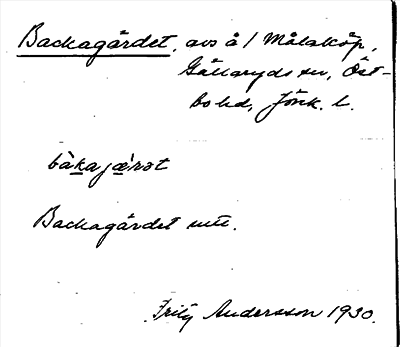 Backagärdet, avs å / Målaköp,
Gällaryds sn, Öst-
bo hd, Jönk. l.
bàkajæ̀rət
Backagärdet
Fritz Andersson 1930.